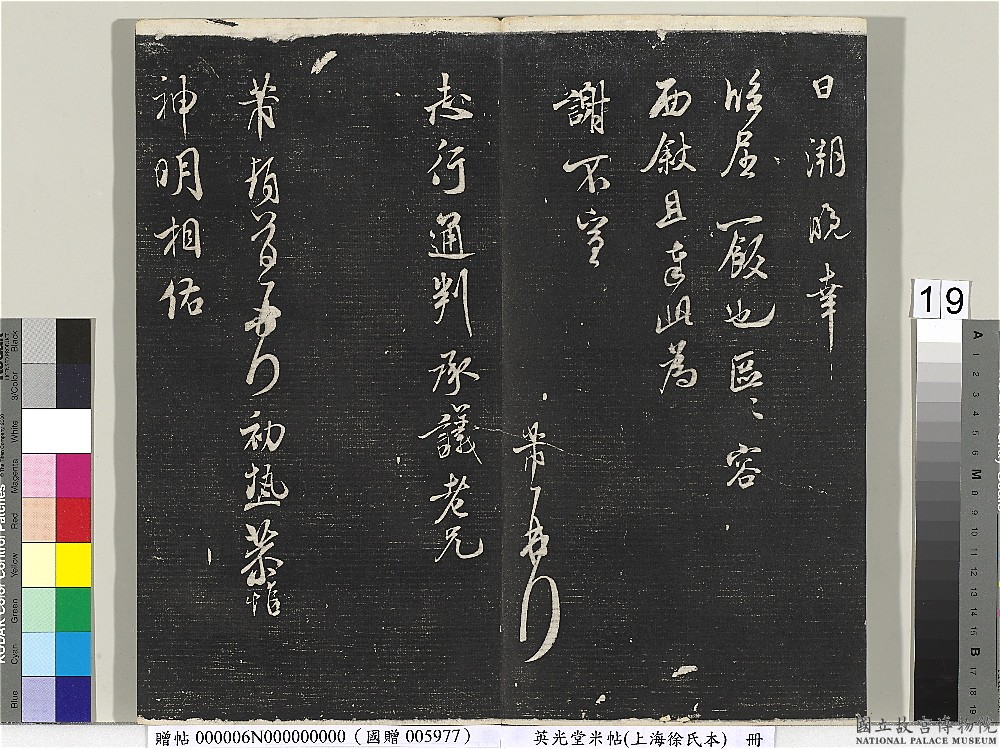 日潮晚幸
臨屈一飯也區〻容
面敘且達此為
謝不宣
芾頓首
志行通判承議老兄
芾頓首再拜初熱恭惟
神明相佑
19
贈帖 000006N000000000（國贈 005977） 英光堂米帖(上海徐氏本) 冊
國立故宮博物院
NATIONAL PALACE MUSEUM
KODAK Color Control Patches
Blue Cyan Green Yellow Red Magenta White 3/Color Black
A 1 2 3 4 5 6 M 8 9 10 11 12 13 14 15 B 17 18 19